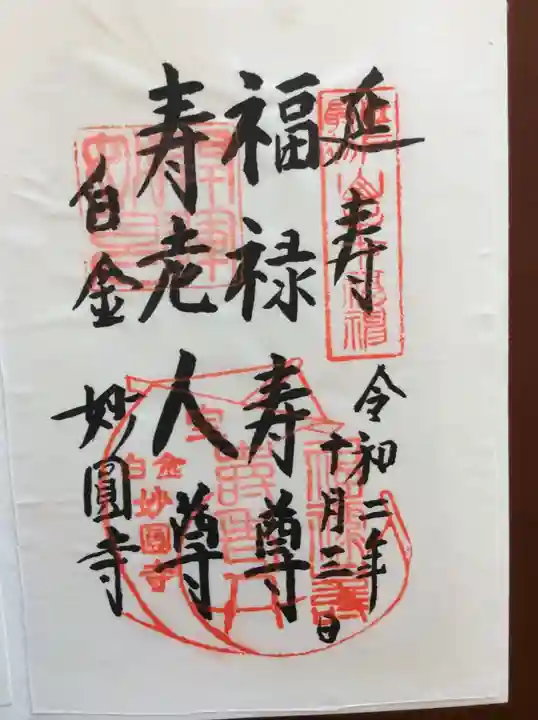 延寿
令和二年
十月三日
福禄寿尊
寿老人尊
白金
妙圓寺
白金
妙圓寺